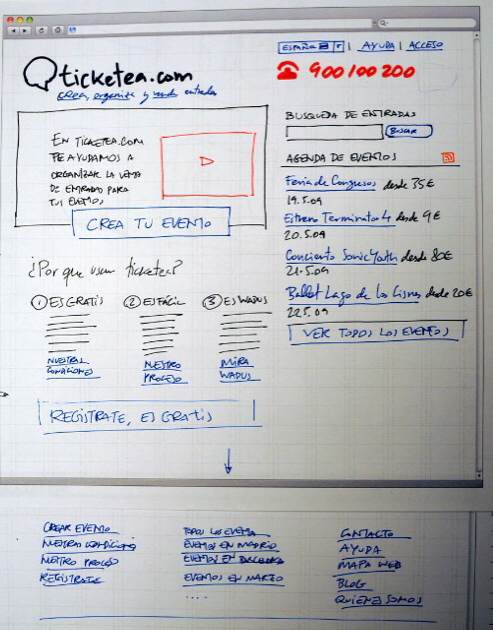 ESPAÑA | AYUDA | ACCESO
ticketea.com
Crea, organiza y vende entradas
900 100 200
EN TICKETEA.COM
TE AYUDAMOS A
ORGANIZAR LA VENTA
DE ENTRADAS PARA
TUS EVENTOS
CREA TU EVENTO
BUSQUEDA DE ENTRADAS
BUSCAR
AGENDA DE EVENTOS
Feria de Congresos desde 35€
19.5.09
Estreno Terminator 4 desde 9€
20.5.09
Concierto Sonic Youth desde 80€
21.5.09
Ballet Lago de los Cisnes desde 20€
22.5.09
VER TODOS LOS EVENTOS
¿Por que usar ticketea?
1 ES GRATIS
2 ES FÁCIL
3 ES WADUS
NUESTRAS
CONDICIONES
NUESTRO
PROCESO
MIRA
WADUS
REGISTRATE, ES GRATIS
CREAR EVENTO
NUESTRAS CONDICIONES
NUESTRO PROCESO
REGISTRATE
TODOS LOS EVENTOS
EVENTOS EN MADRID
EVENTOS EN BARCELONA
EVENTOS EN MARZO
....
CONTACTO
AYUDA
MAPA WEB
BLOG
QUIENES SOMOS